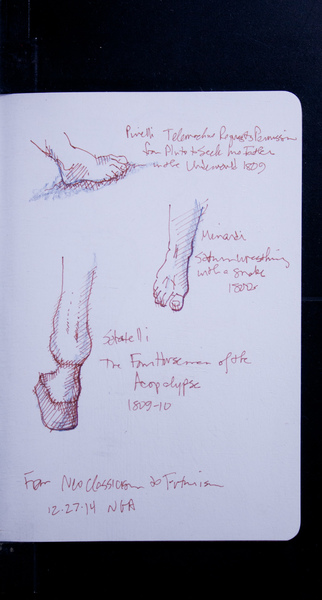 Pinelli Telemachus Requests Permission
from Pluto to Seek his Father
in the Underworld 1809
Minardi
Saturn wrestling
with a snake
1800s
Sabatelli
The Four Horsemen of the
Acopalypse
1809-10
From Neoclassicism to Futurism
12.27.14 NGA